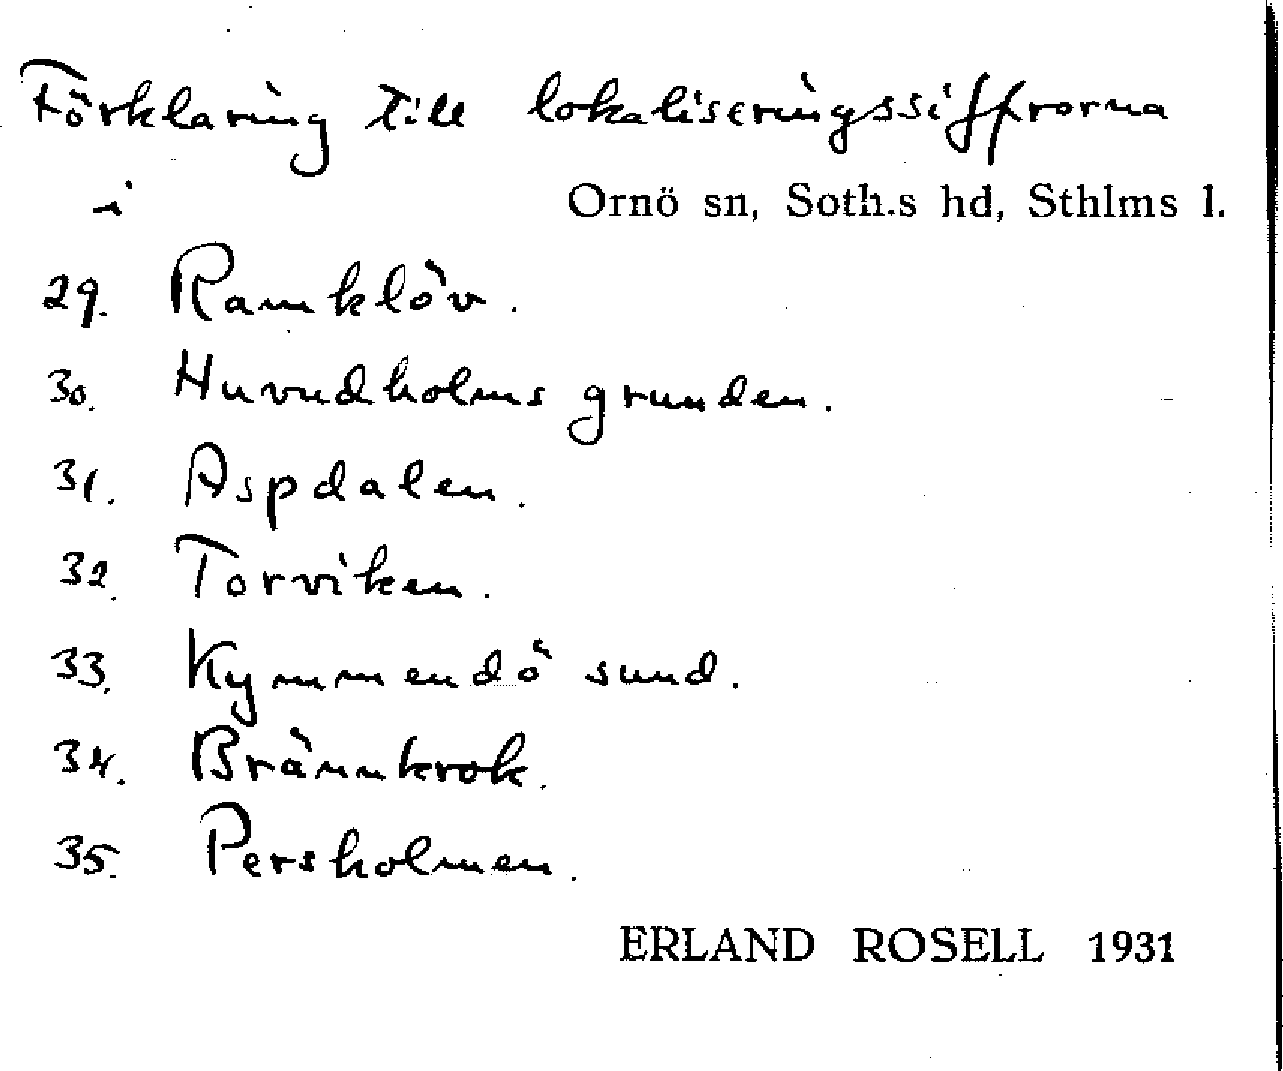 Förklaring till lokaliseringssiffrorna
i Ornö sn, Soth.s hd, Sthlms l.
29. Ramklöv.
30. Huvudholms grunden.
31. Aspdalen.
32. Torviken.
33. Kymmendö sund.
34. Brännkrok.
35. Persholmen.
ERLAND ROSELL 1931